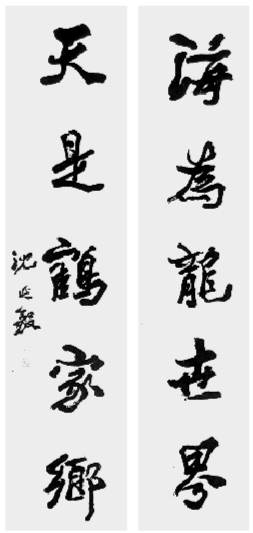 海為龍世界
天是鶴家鄉
沈延毅